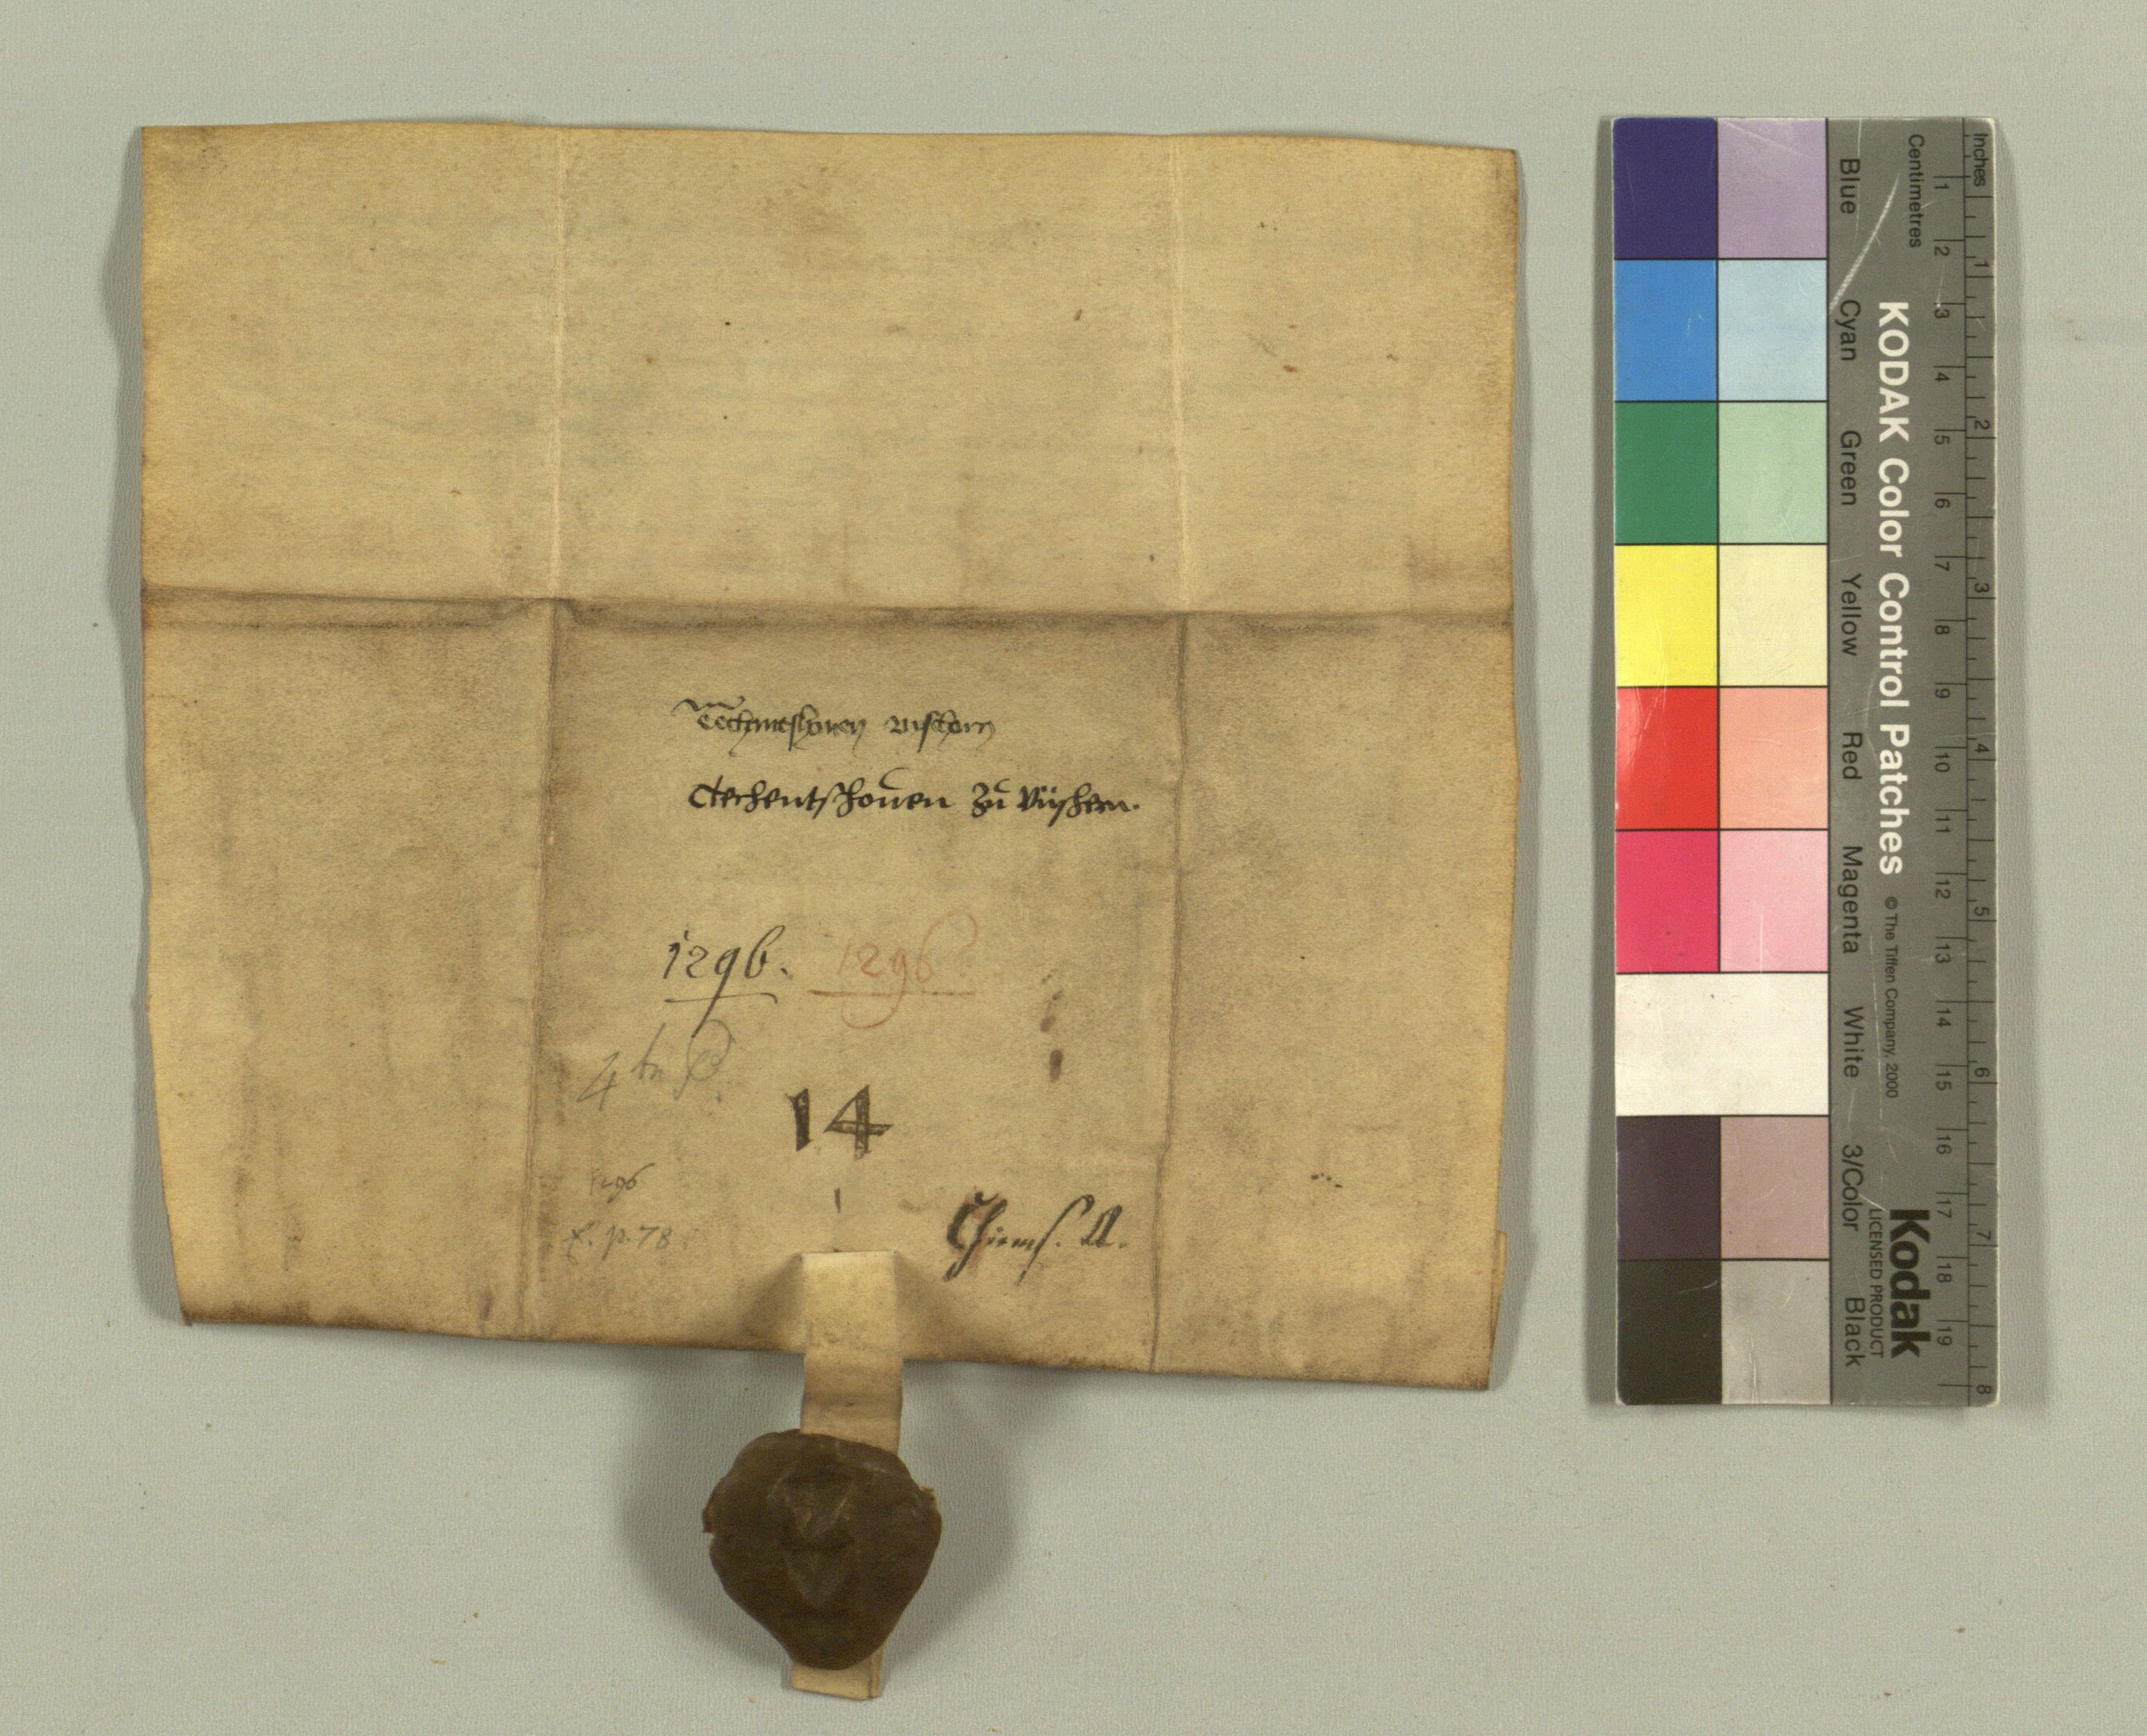 Techentshouen zu Vishern.
1296. 1296.
14
1296
f. p. 78
Chiems. A.
Inches
Centimetres
1 2 3 4 5 6 7 8 9 10 11 12 13 14 15 16 17 18 19
1 2 3 4 5 6 7 8
KODAK Color Control Patches © The Tiffen Company, 2000
Kodak
LICENSED PRODUCT
Blue Cyan Green Yellow Red Magenta White 3/Color Black